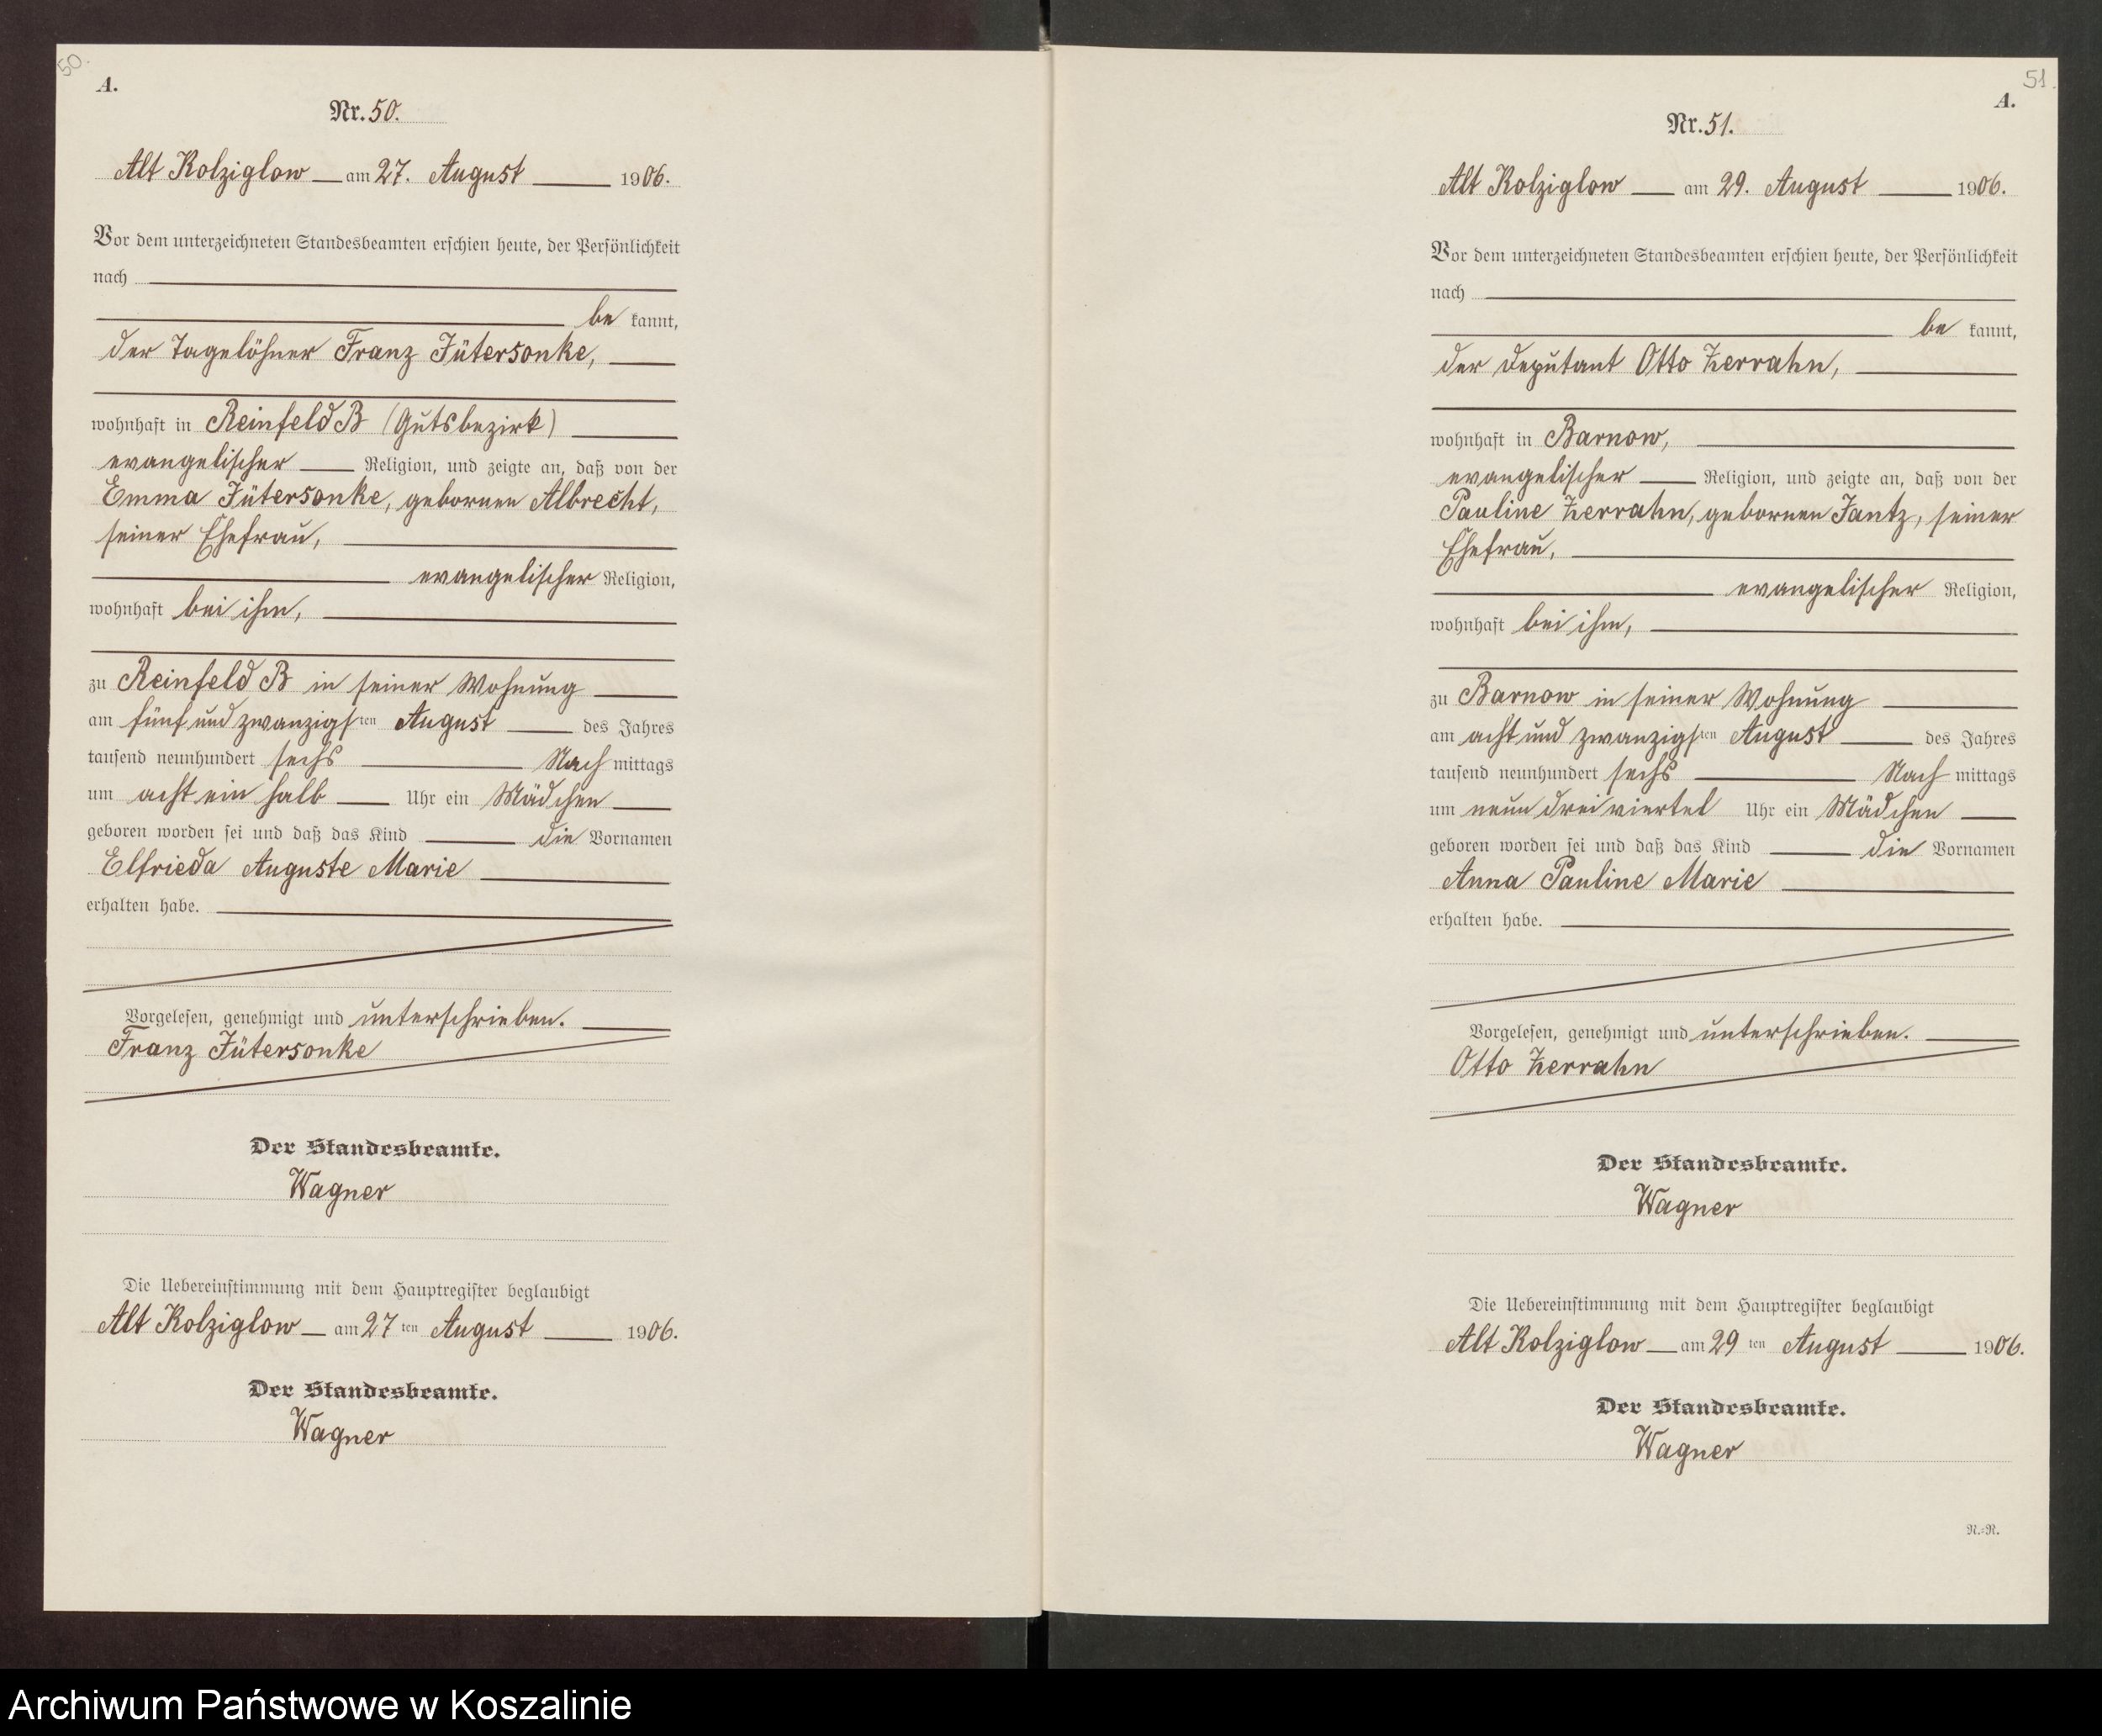 50.
A.
Nr. 50.
Alt Kolziglow am 27. August 1906.
Vor dem unterzeichneten Standesbeamten erschien heute, der Persönlichkeit
nach
be kannt,
der Tagelöhner Franz Jütersonke,
wohnhaft in Reinfeld B (Gutsbezirk)
evangelischer Religion, und zeigte an, daß von der
Emma Jütersonke, gebornen Albrecht,
seiner Ehefrau,
evangelischer Religion,
wohnhaft bei ihm,
zu Reinfeld B in seiner Wohnung
am fünf und zwanzigsten August des Jahres
tausend neunhundert sechs Nach mittags
um acht ein halb Uhr ein Mädchen
geboren worden sei und daß das Kind die Vornamen
Elfrieda Auguste Marie
erhalten habe.
Vorgelesen, genehmigt und unterschrieben.
Franz Jütersonke
Der Standesbeamte.
Wagner
Die Uebereinstimmung mit dem Hauptregister beglaubigt
Alt Kolziglow am 27ten August 1906.
Der Standesbeamte.
Wagner
51.
A.
Nr. 51.
Alt Kolziglow am 29. August 1906.
Vor dem unterzeichneten Standesbeamten erschien heute, der Persönlichkeit
nach
be kannt,
der Deputant Otto Zerrahn,
wohnhaft in Barnow,
evangelischer Religion, und zeigte an, daß von der
Pauline Zerrahn, gebornen Jantz, seiner
Ehefrau,
evangelischer Religion,
wohnhaft bei ihm,
zu Barnow in seiner Wohnung
am acht und zwanzigsten August des Jahres
tausend neunhundert sechs Nach mittags
um neun drei viertel Uhr ein Mädchen
geboren worden sei und daß das Kind die Vornamen
Anna Pauline Marie
erhalten habe.
Vorgelesen, genehmigt und unterschrieben.
Otto Zerrahn
Der Standesbeamte.
Wagner
Die Uebereinstimmung mit dem Hauptregister beglaubigt
Alt Kolziglow am 29ten August 1906.
Der Standesbeamte.
Wagner
N.=R.
Archiwum Państwowe w Koszalinie